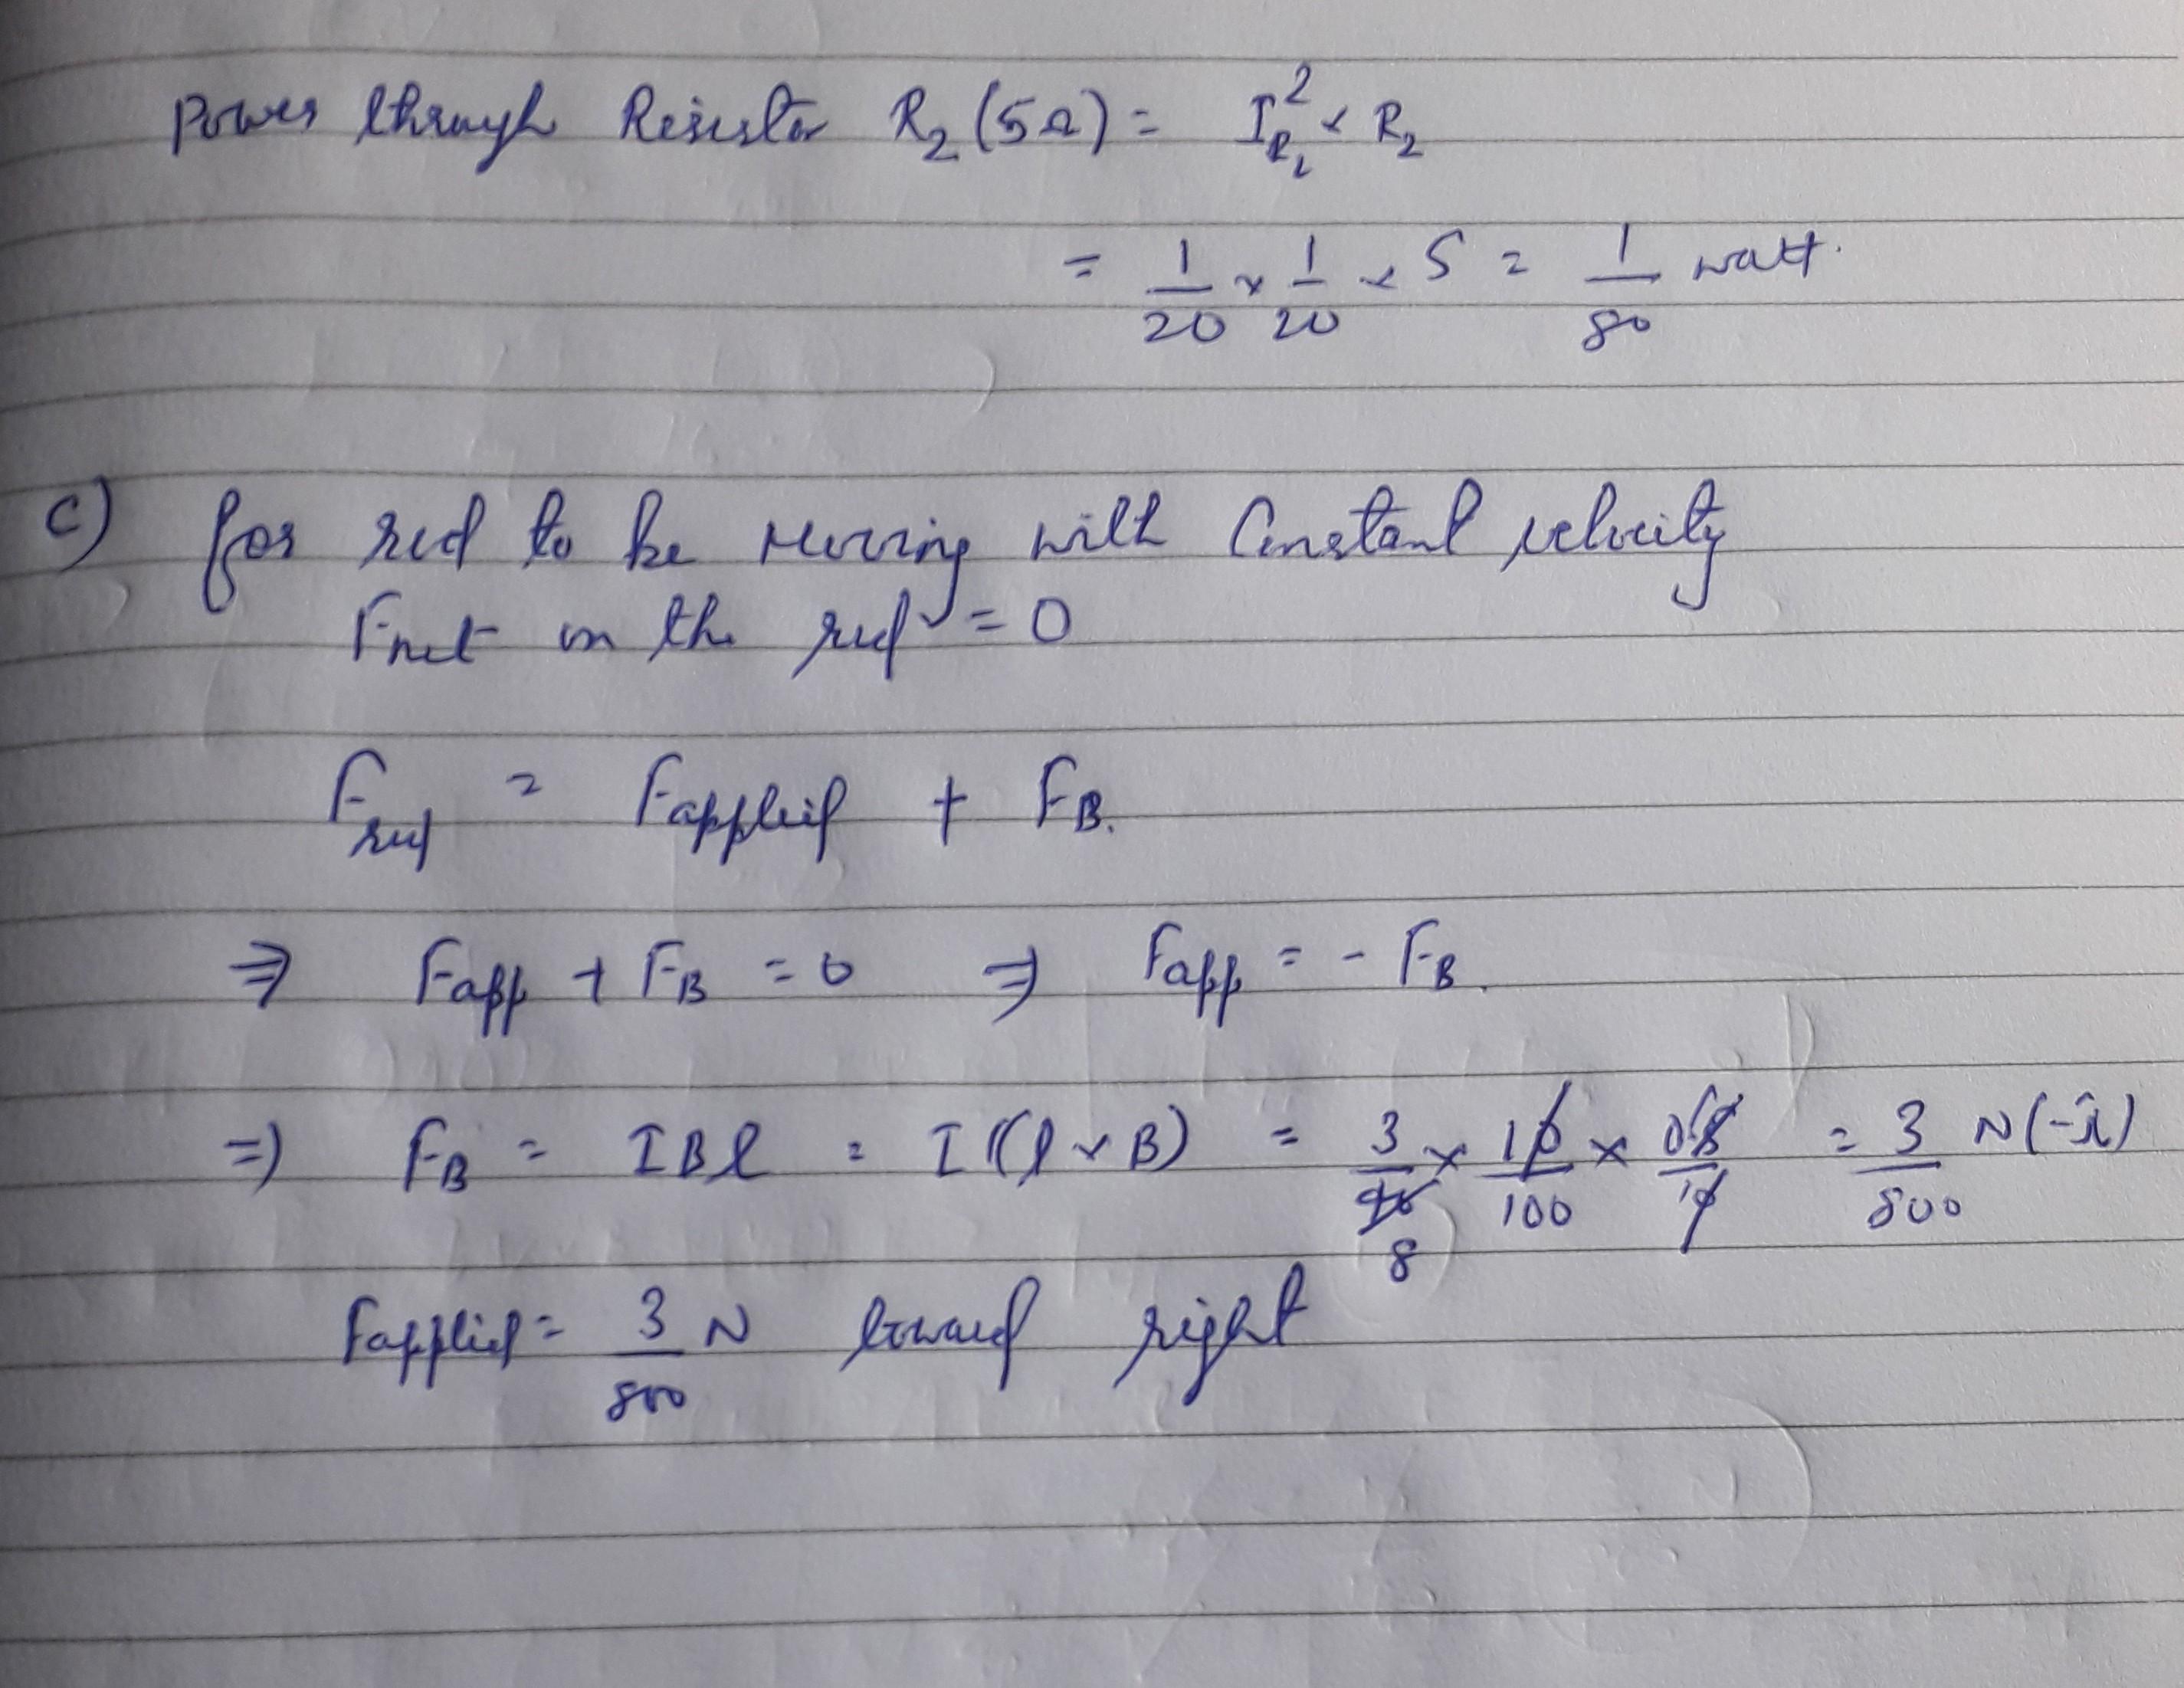 Power through Resistor R₂ (5Ω) = I_R₂² × R₂
= 1/20 × 1/20 × 5 = 1/80 watt.
c) for rod to be moving with Constant velocity
Fnet on the rod = 0
F_rod = Fapplied + F_B.
⇒ Fapp + F_B = 0 ⇒ Fapp = - F_B.
⇒ F_B = IBl = I(l × B) = 3/8 × 10/100 × /10 = 3/800 N(-î)
Fapplied = 3/800 N toward right